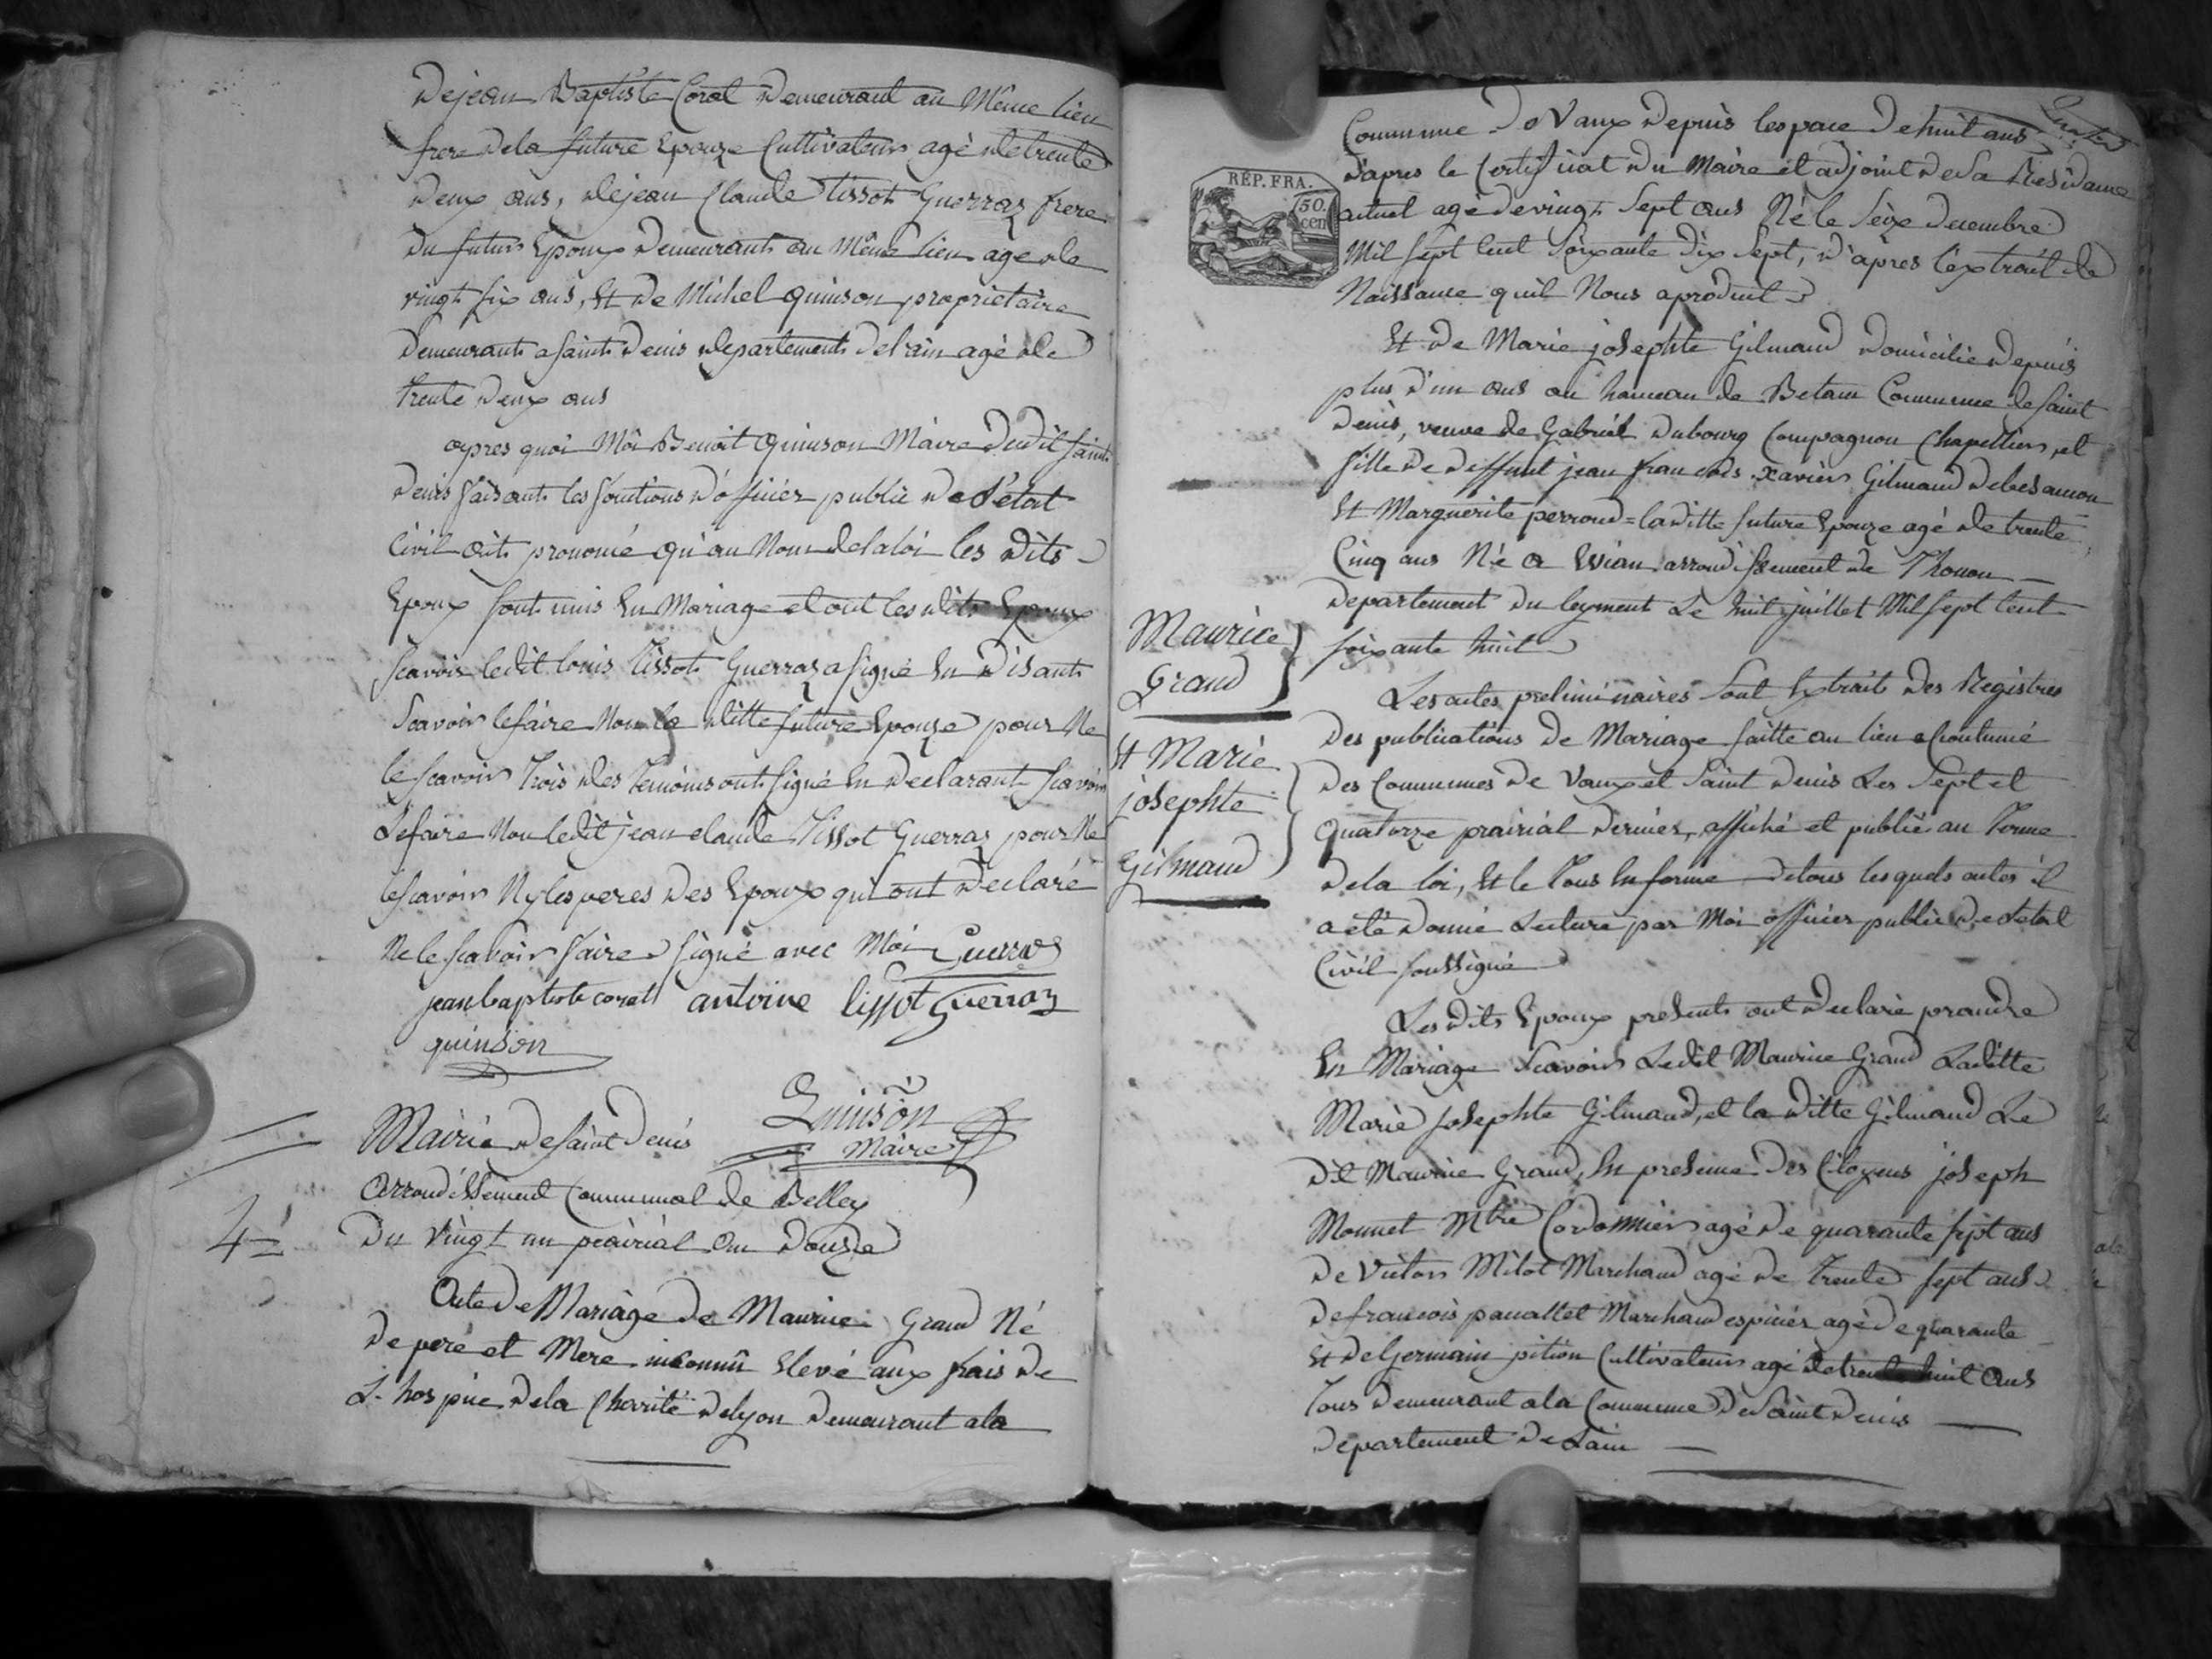 De jean Baptiste Corat Demeurant au Même lieu
frere dela future Epouze Cultivateur agé de trente
deux ans, de jean Claude Tissot Guerraz frere
du futur Epoux Demeurant au Même lieu age de
vingt six ans, Et de Michel quinson propriétaire
demeurant a saint denis departement del'ain agé de
trente deux ans
apres quoi Moi Benoit Quinson Maire dudit saint
denis faisant les fonctions d'officier public de l'état
Civil ait pronomé qu'au Nom de la loi les dits
Epoux sont unis En Mariage et ont les dits Epoux
scavoir ledit louis Tissot Guerraz a signé En disant
scavoir le faire Non la ditte future Epouze pour Ne
le scavoir Trois des Temoins ont signé En declarant scavoir
Le faire Non ledit jean claude Tissot Guerraz pour Ne
le scavoir Ny les peres des Epoux qui ont declaré
Ne le scavoir faire signé avec Moi Guerraz
jean baptiste corat antoine tissot guerraz
quinson
Quinson
Maire
Mairie de saint Denis
Arrondissement Communal de Belley
4e Du vingt un prairial an douze
Acte de Mariage de Maurice Grand Né
de pere et Mere inconnû Elevé aux frais de
L'hospice dela Charité de lyon demeurant ala
REP. FRA.
50.
cen
Commune de Vaux depuis lespace de huit ans
d'apres le Certificat du Maire et adjoint de sa Residance
actuel agé de vingt sept ans Né le seize decembre
Mil sept cent soixante dix sept, d'apres l'extrait de
Naissance quil Nous a produit
Et de Marie josephte Gilmaud domicilié depuis
plus d'un ans au hameau de Betam Commune de saint
denis, veuve de Gabriel dubourg Compagnon Chapellier, et
fille de deffunt jean francois xavier Gilmaud de besancon
Et Marguerite perroud = laditte future Epouze agé de trente
Cinq ans Né a Evian arrondissement de Thonon
departement du leyment Le huit juillet Mil sept cent
soixante huit
Maurice
Grand
Et Marie
josephte
Gilmaud
Les actes preliminaires sont Extrait des Registres
des publications de Mariage faitte au lieu acoutumé
des Communes de Vaux et Saint Denis Les sept et
quatorze prairial dernier, affiché et publié au Terme
dela loi, Et le Tous En forme de tous lesquels actes il
a eté donné Lecture par Moi officier public de letat
Civil soussigné
Les dits Epoux présents ont declaré prandre
En Mariage scavoir Ledit Maurice Grand Laditte
Marie josephte Gilmaud, et la ditte Gilmaud Le
dit Maurice Grand, En presence des Citoyens joseph
Monnet Mtre Cordonnier agé de quarante sept ans
de Victor Milot Marchand agé de trente sept ans
de francois Marchand espicier agé de quarante
Et de Germain pition Cultivateur agé de trente huit ans
Tous demeurant ala Commune de Saint Denis
departement de Lain